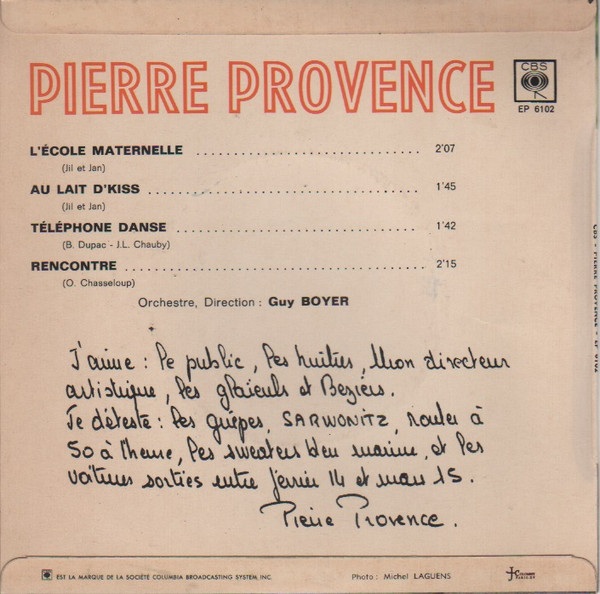 PIERRE PROVENCE
CBS
EP 6102
L'ÉCOLE MATERNELLE ........................................ 2'07
(Jil et Jan)
AU LAIT D'KISS ................................................ 1'45
(Jil et Jan)
TÉLÉPHONE DANSE ........................................ 1'42
(B. Dupac - J.L. Chauby)
RENCONTRE .................................................... 2'15
(O. Chasseloup)
Orchestre, Direction : Guy BOYER
J'aime : le public, les huîtres, Mon directeur
artistique, les glaïeuls et Beziers.
Je déteste : les guêpes, SARWONITZ, rouler à
50 à l'heure, les sweaters bleu marine, et les
voitures sorties entre février 14 et mars 15.
Pierre Provence.
CBS - PIERRE PROVENCE - EP 6102
EST LA MARQUE DE LA SOCIÉTÉ COLUMBIA BROADCASTING SYSTEM, INC.
Photo : Michel LAGUENS